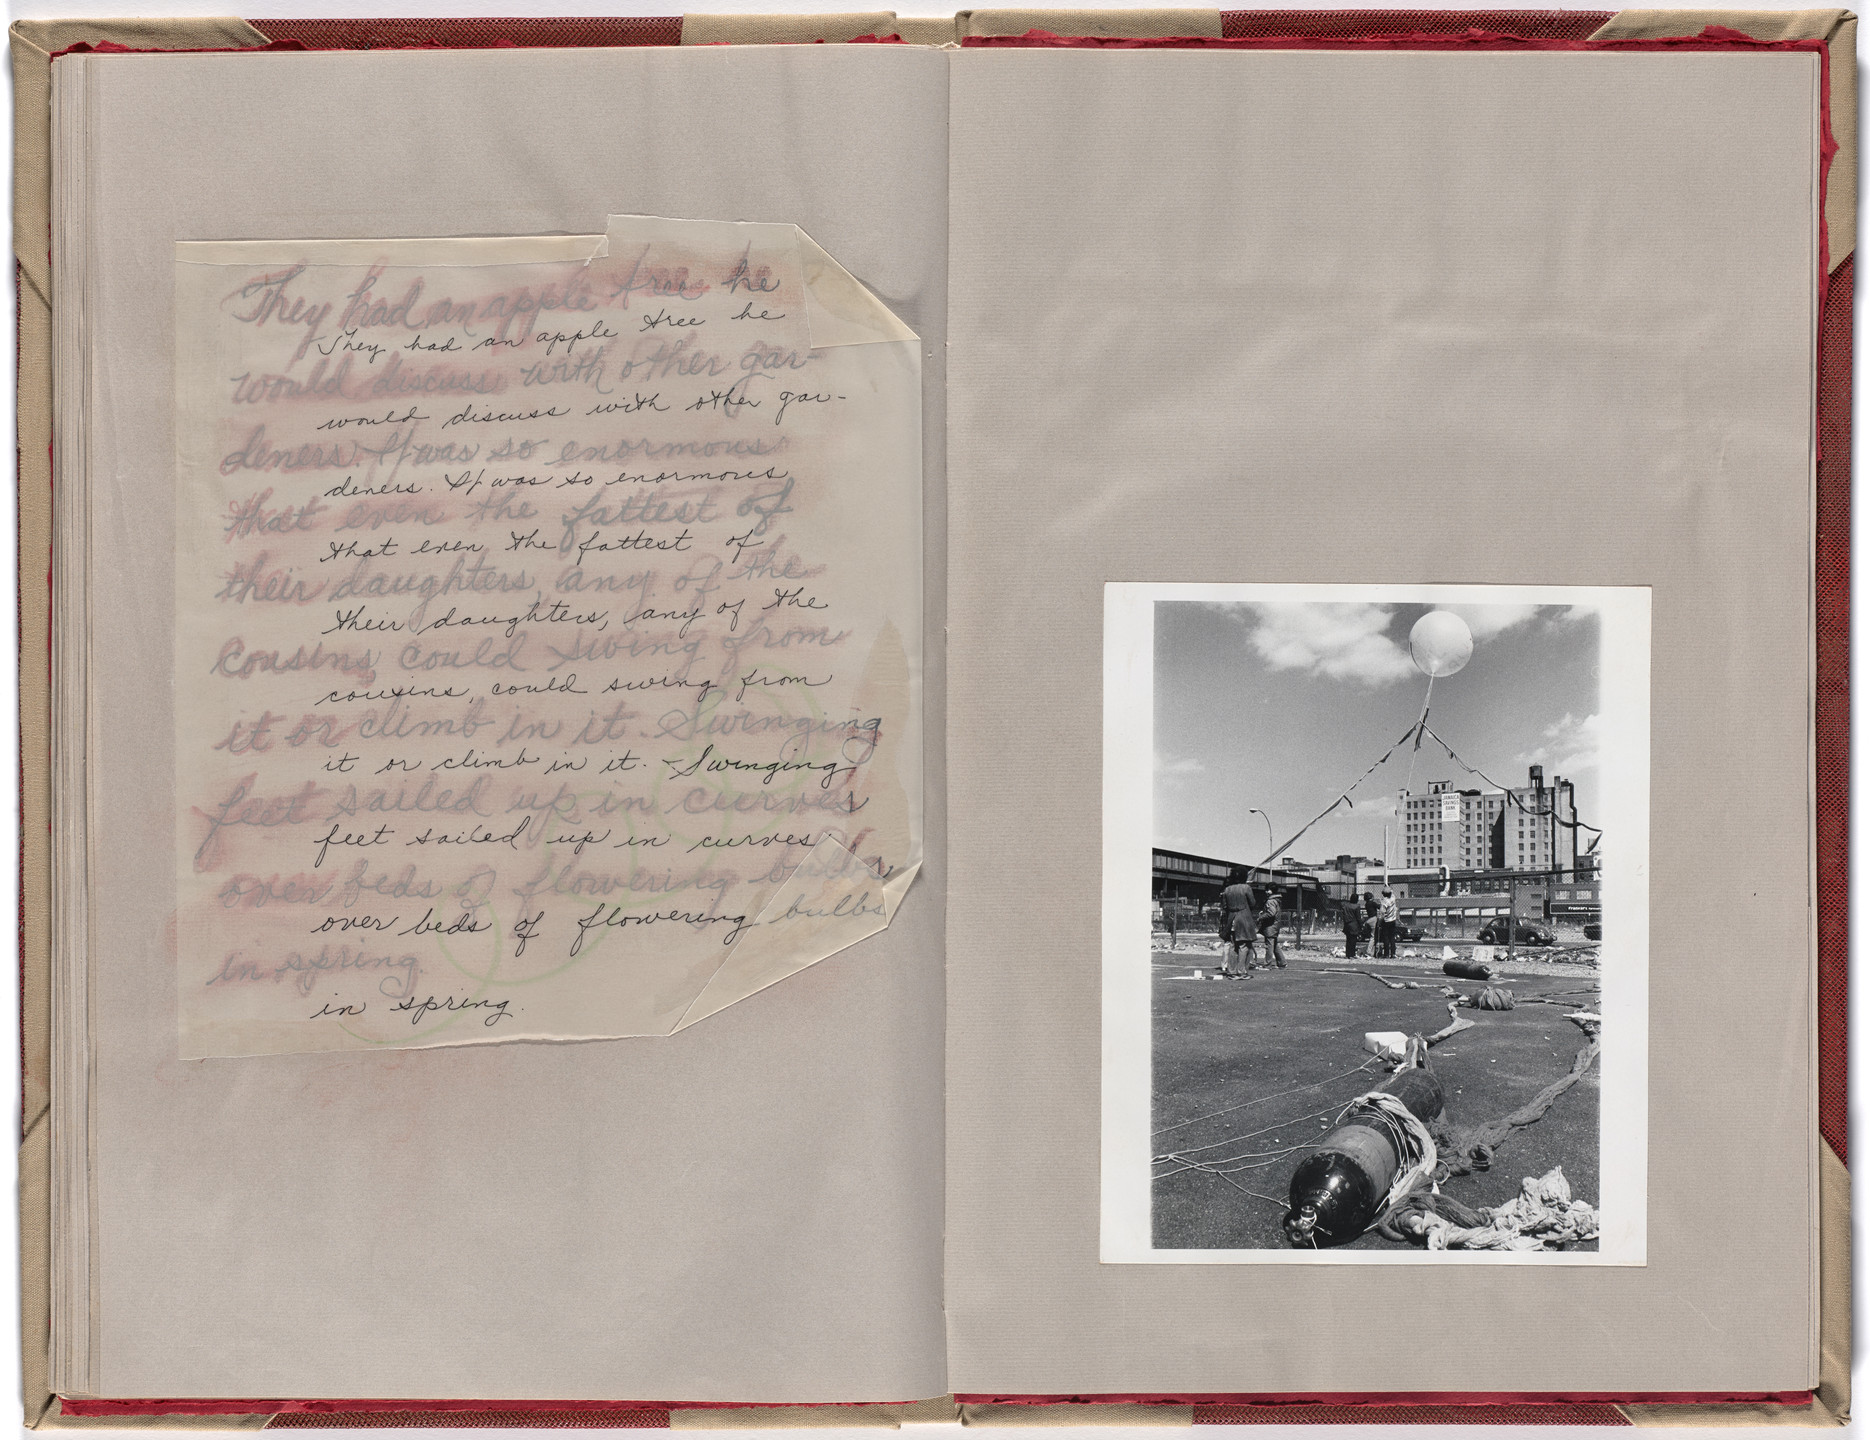 They had an apple tree he
They had an apple tree he
would discuss with other gar-
would discuss with other gar-
deners. It was so enormous
deners. It was so enormous
that even the fattest of
that even the fattest of
their daughters, any of the
their daughters, any of the
cousins, could swing from
cousins, could swing from
it or climb in it. Swinging
it or climb in it. Swinging
feet sailed up in curves
feet sailed up in curves
over beds of flowering bulbs
over beds of flowering bulbs
in spring.
in spring.
JAMAICA
SAVINGS
BANK